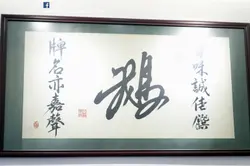 味誠佳饌
鵝
牌名亦嘉聲